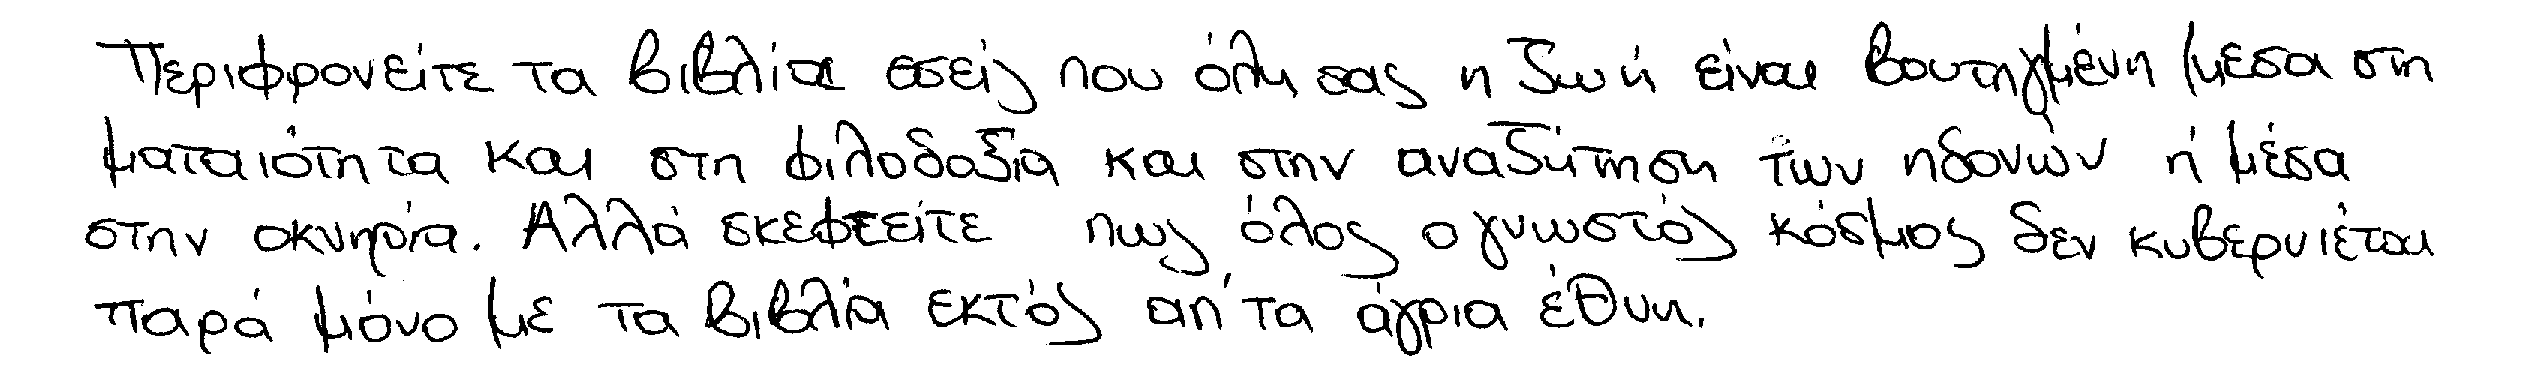 Περιφρονείτε τα βιβλία εσείς που όλη σας η ζωή είναι βουτηγμένη μεσα στη
ματαιότητα και στη φιλοδοξία και στην αναζήτηση των ηδονών ή μέσα
στην οκνηρία. Αλλά σκεφτείτε πως όλος ο γνωστός κόσμος δεν κυβερνιέται
παρά μόνο με τα βιβλία εκτός απ' τα άγρια έθνη.